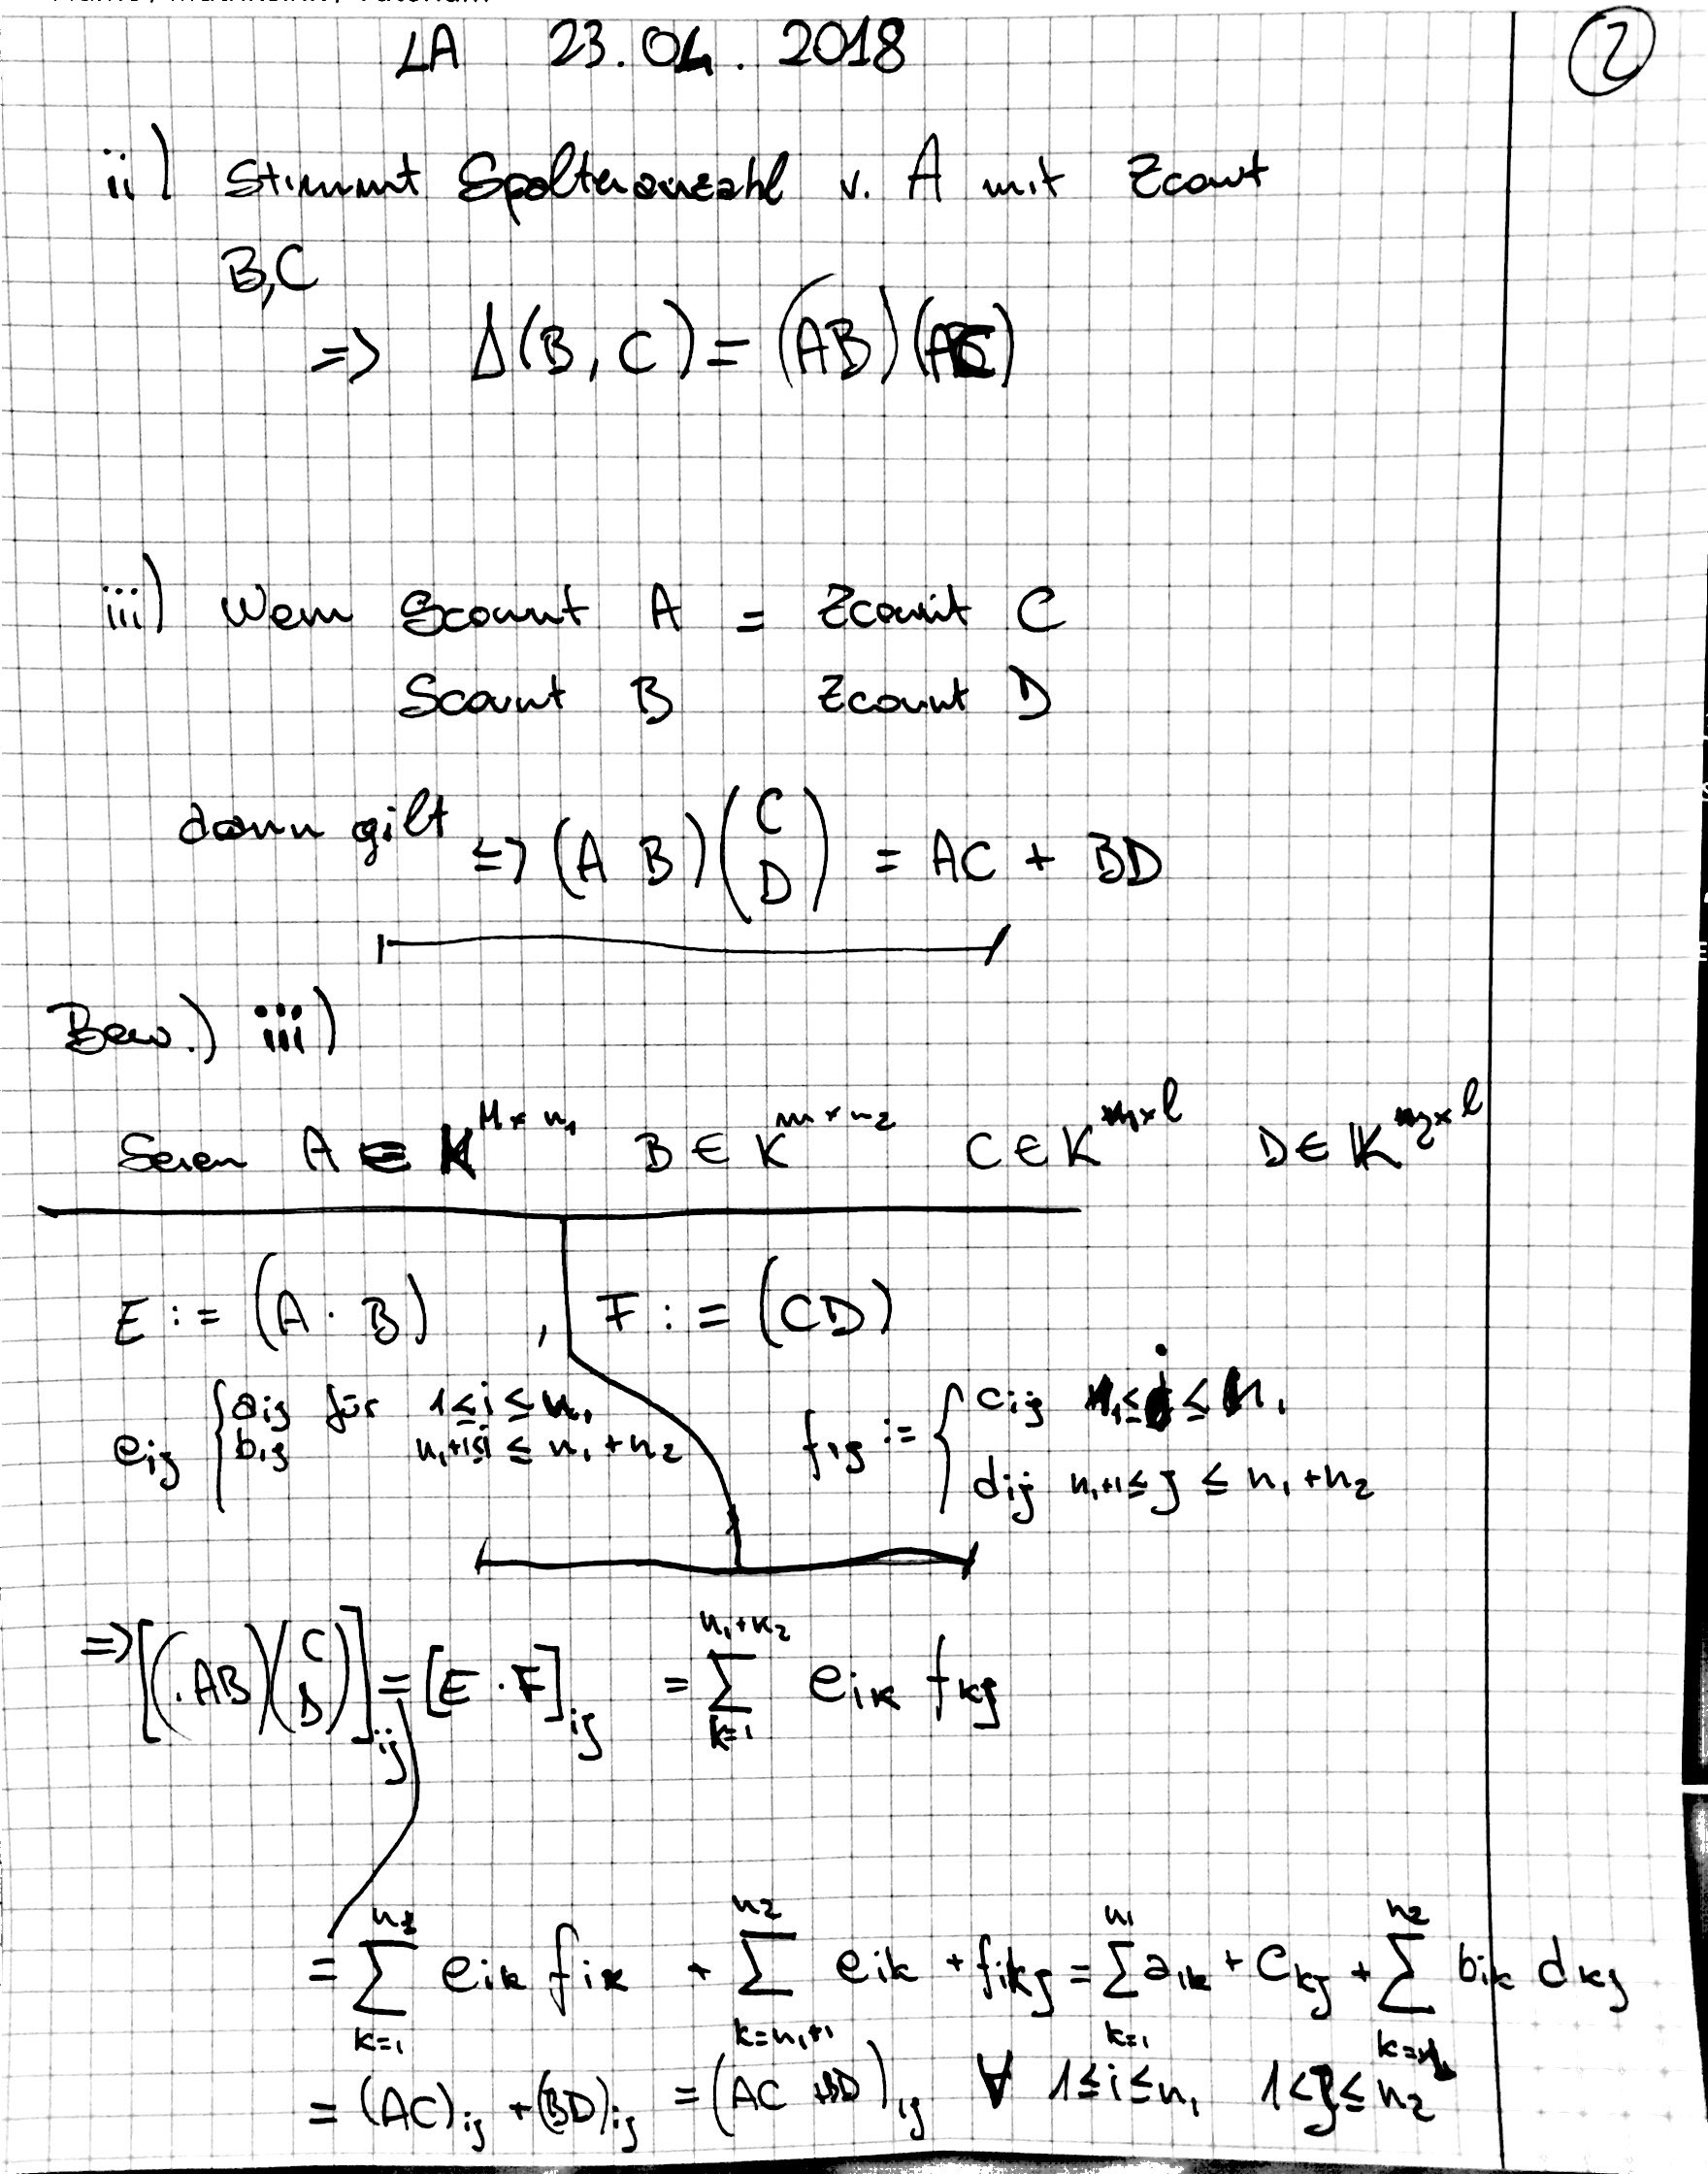 LA 23.04.2018 ②
ii) Stimmt Spaltenanzahl v. A mit Zcount
B,C
=> A(B, C) = (AB)(AC)
iii) Wenn Scount A = Zcount C
Scount B Zcount D
dann gilt <=> (A B)(C D) = AC + BD
Bew.) iii)
Seien A ∈ K^{M×n₁} B ∈ K^{m×n₂} C ∈ K^{n₁×l} D ∈ K^{n₂×l}
E := (A · B) , F := (CD)
e_{ij} { a_{ij} für 1≤i≤n₁ f_{ij} := { c_{ij} ≤j≤ n₁
b_{ij} n₁+1≤i≤n₁+n₂ d_{ij} n₁+1≤j≤n₁+n₂
=> [(.AB)(C D)]_{ij} = [E · F]_{ij} = ∑_{k=1}^{n₁+n₂} e_{ik} f_{kj}
= ∑_{k=1} e_{ik} f_{ik} + ∑_{k=n₁+1}^{n₂} e_{ik} + f_{ikj} = ∑_{k=1}^{n₁} a_{ik} + c_{kj} + ∑_{k=}^{n₂} b_{ik} d_{kj}
= (AC)_{ij} + (BD)_{ij} = (AC +BD)_{ij} ∀ 1≤i≤n₁ 1<j≤n₂